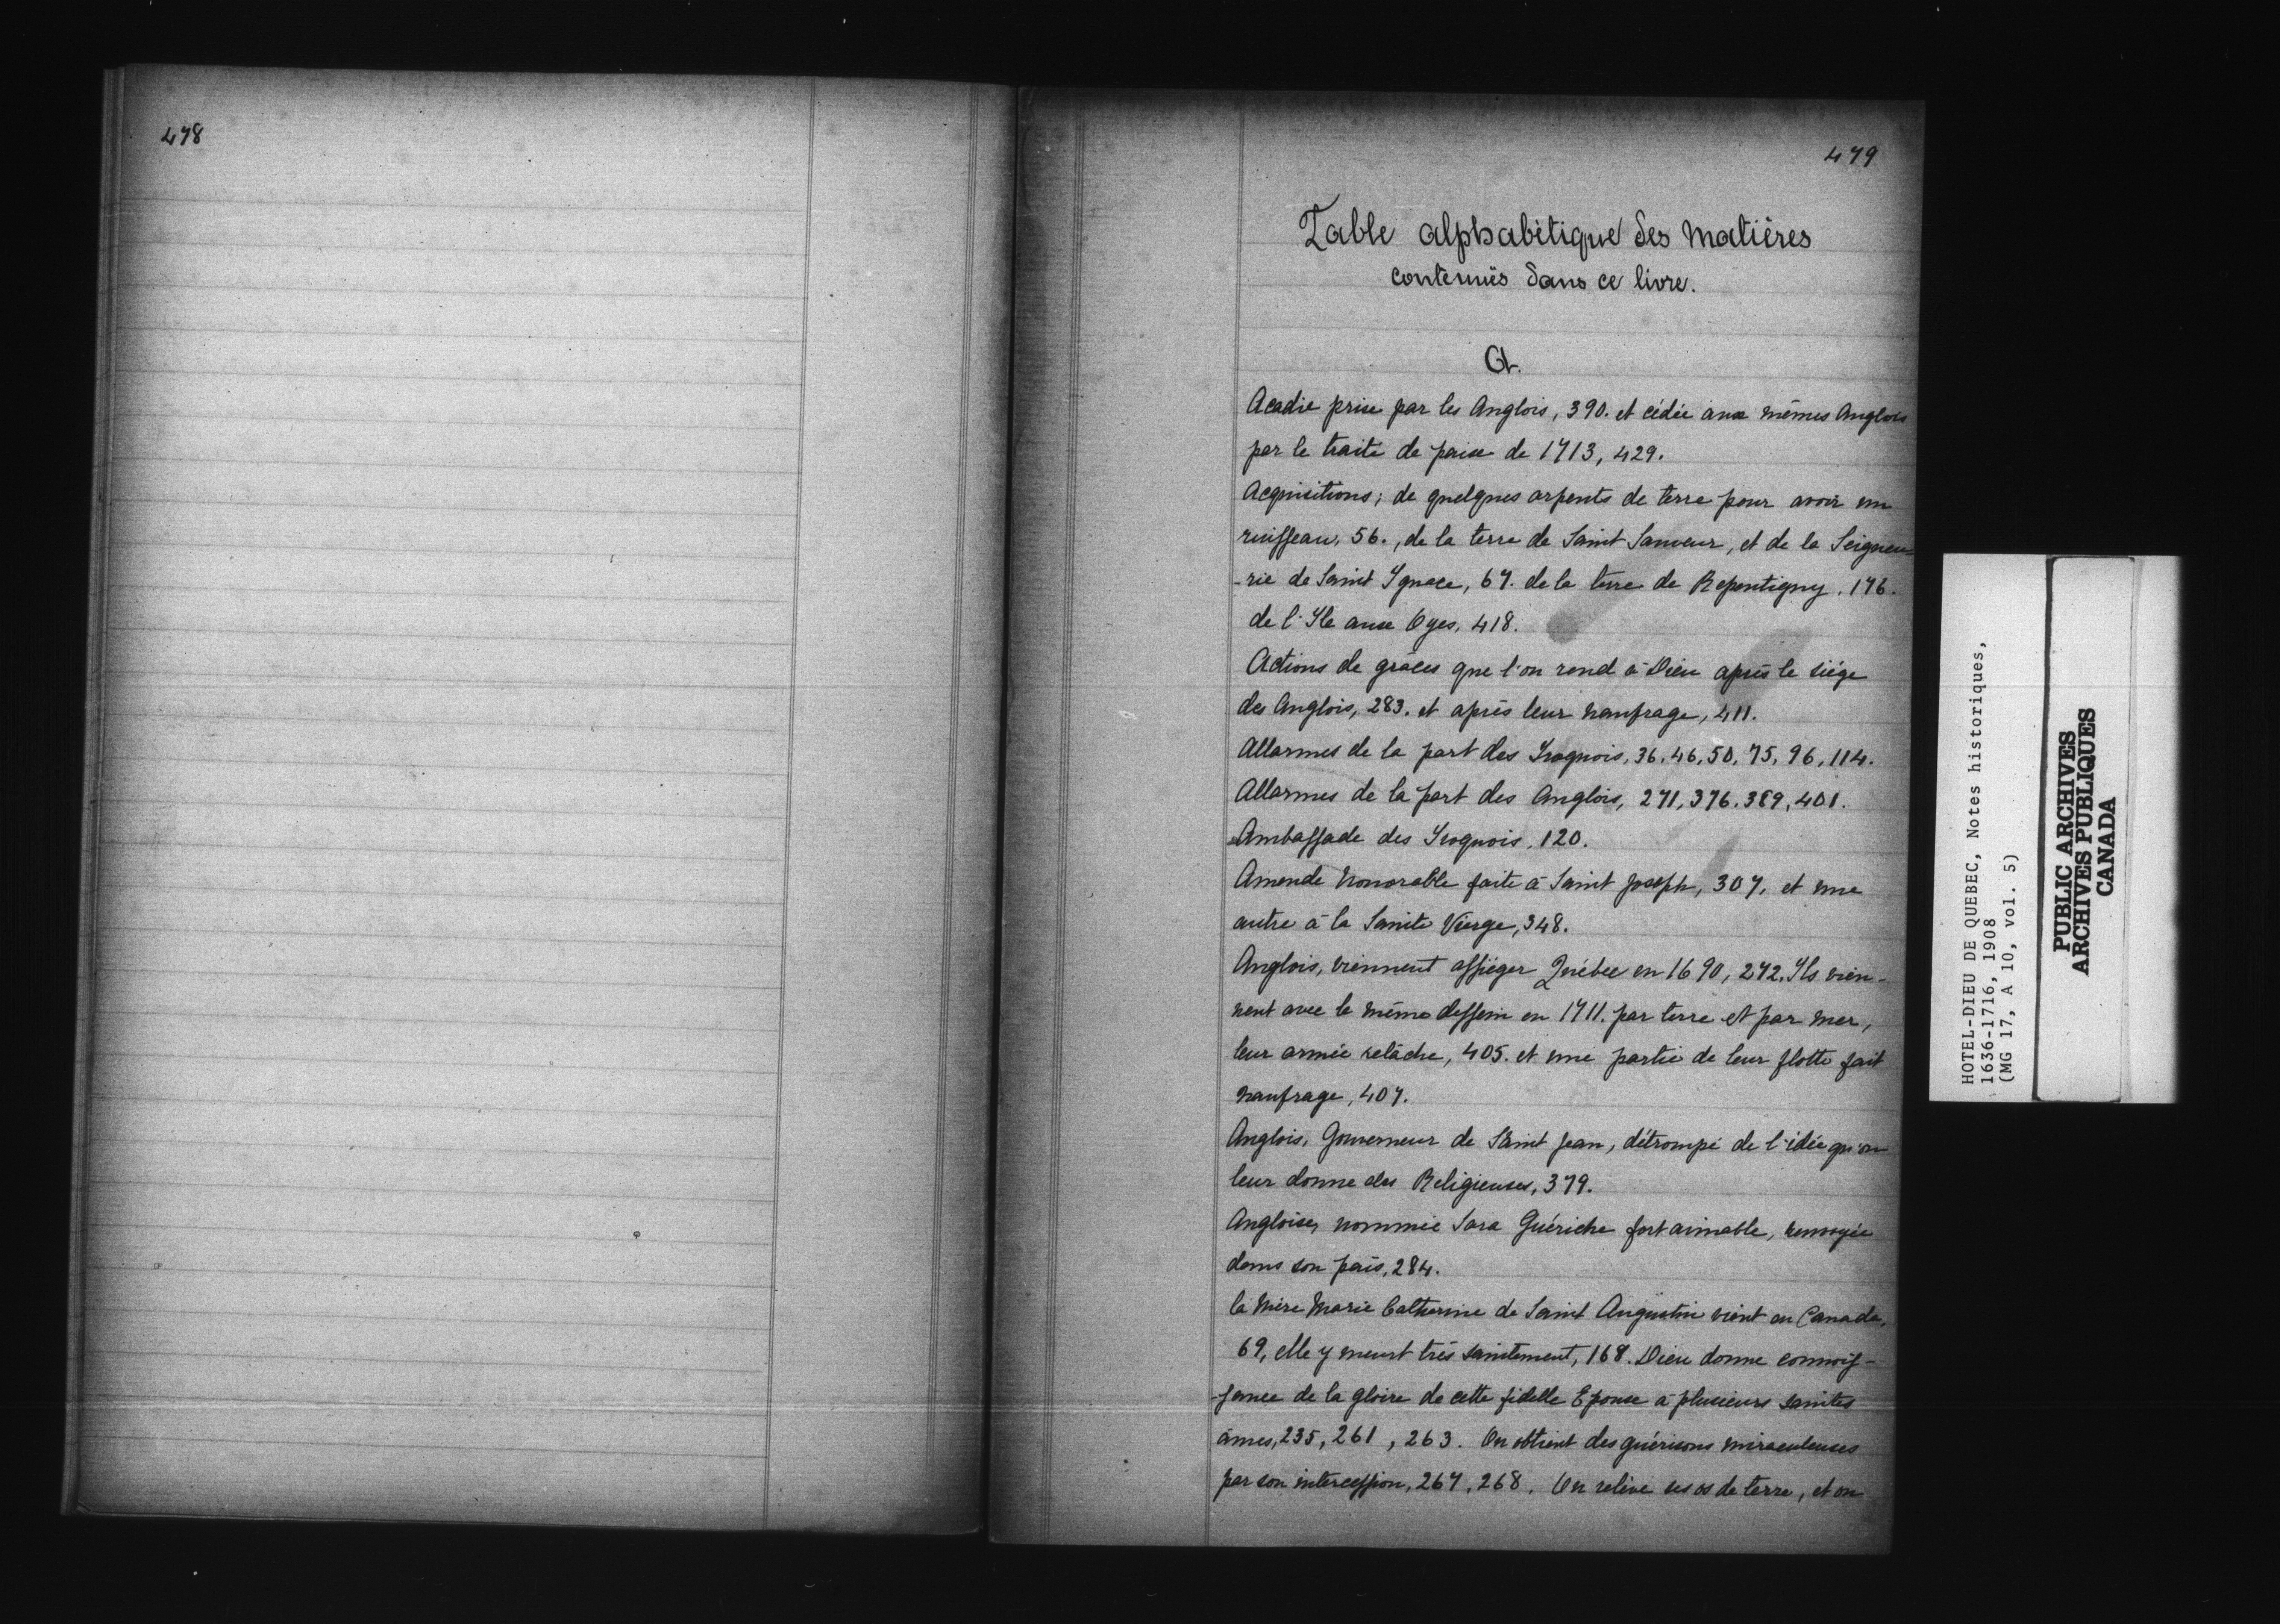 478
479
Table alphabétique des matières
contenuës dans ce livre.
A.
Acadie prise par les Anglois, 390. et cédée aux mêmes Anglois
par le traité de paix de 1713, 429.
Acquisitions; de quelques arpents de terre pour avoir un
ruisseau, 56., de la terre de Saint Sauveur, et de la Seigneu-
-rie de Saint Ignace, 67. de la terre de Repentigny. 176.
de l'Ile aux Oyes, 418.
Actions de grâces que l'on rend à Dieu après le siége
des Anglois, 283. et après leur naufrage, 411.
Allarmes de la part des Iroquois, 36, 46, 50, 75, 96, 114.
Allarmes de la part des Anglois, 271, 376. 389, 401.
Ambassade des Iroquois, 120.
Amende honorable faite à Saint Joseph, 307, et une
autre à la Sainte Vierge, 348.
Anglois, viennent assiéger Québec en 1690, 272. Ils vien-
nent avec le même dessein en 1711. par terre et par mer,
leur armée relâche, 405. et une partie de leur flotte fait
naufrage, 407.
Anglois, Gouverneur de Saint Jean, détrompé de l'idée qu'on
leur donne des Religieuses, 379.
Angloise, nommée Sara Guériche fort aimable, renvoyée
dans son païs, 284.
la Mère Marie Catherine de Saint Augustin vient en Canada,
69, elle y meurt très saintement, 168. Dieu donne connois-
-sance de la gloire de cette fidelle Epouse à plusieurs saintes
âmes, 235, 261, 263. On obtient des guérisons miraculeuses
par son intercession, 267, 268. On relève ses os de terre, et on
HOTEL-DIEU DE QUEBEC, Notes historiques,
1636-1716, 1908
(MG 17, A 10, vol. 5)
PUBLIC ARCHIVES
ARCHIVES PUBLIQUES
CANADA